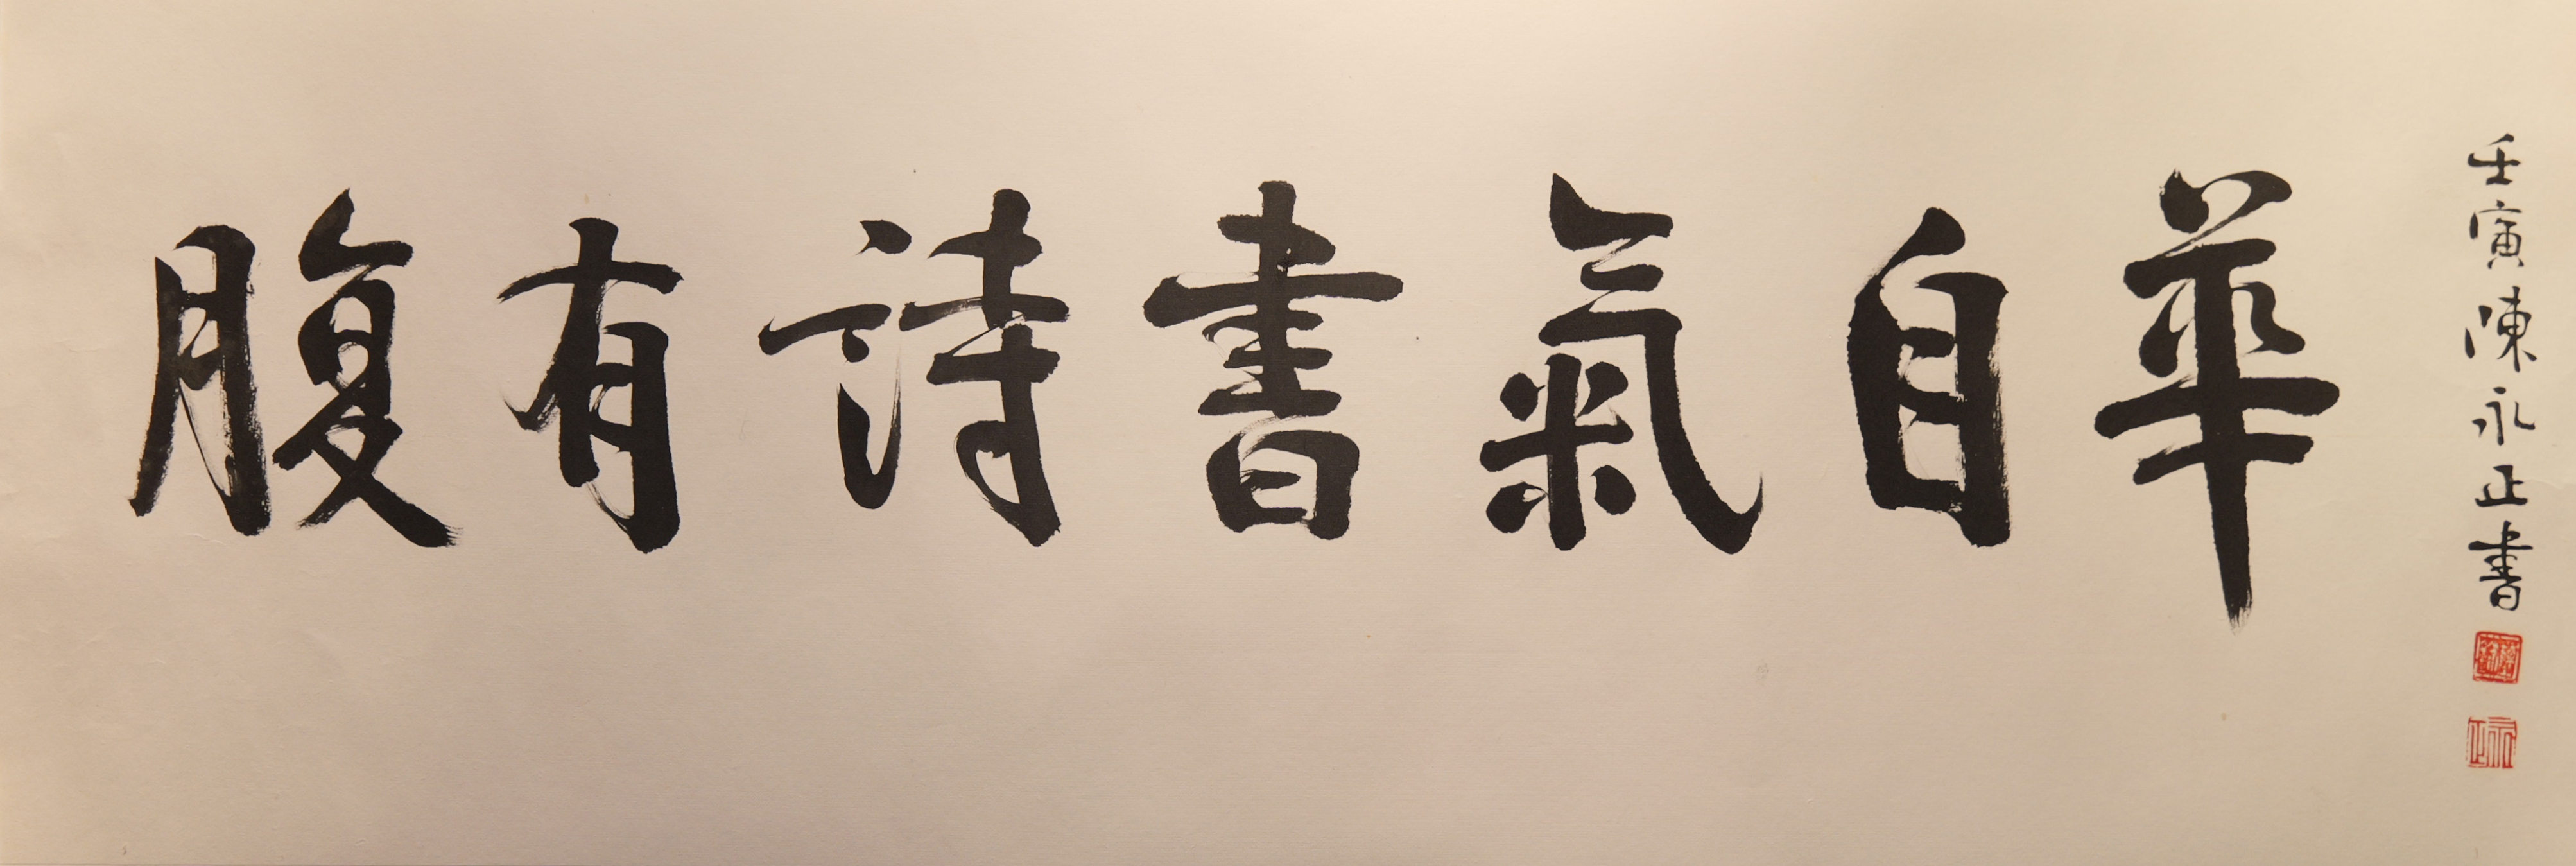 腹有詩書氣自華
壬寅陳永正書
永正